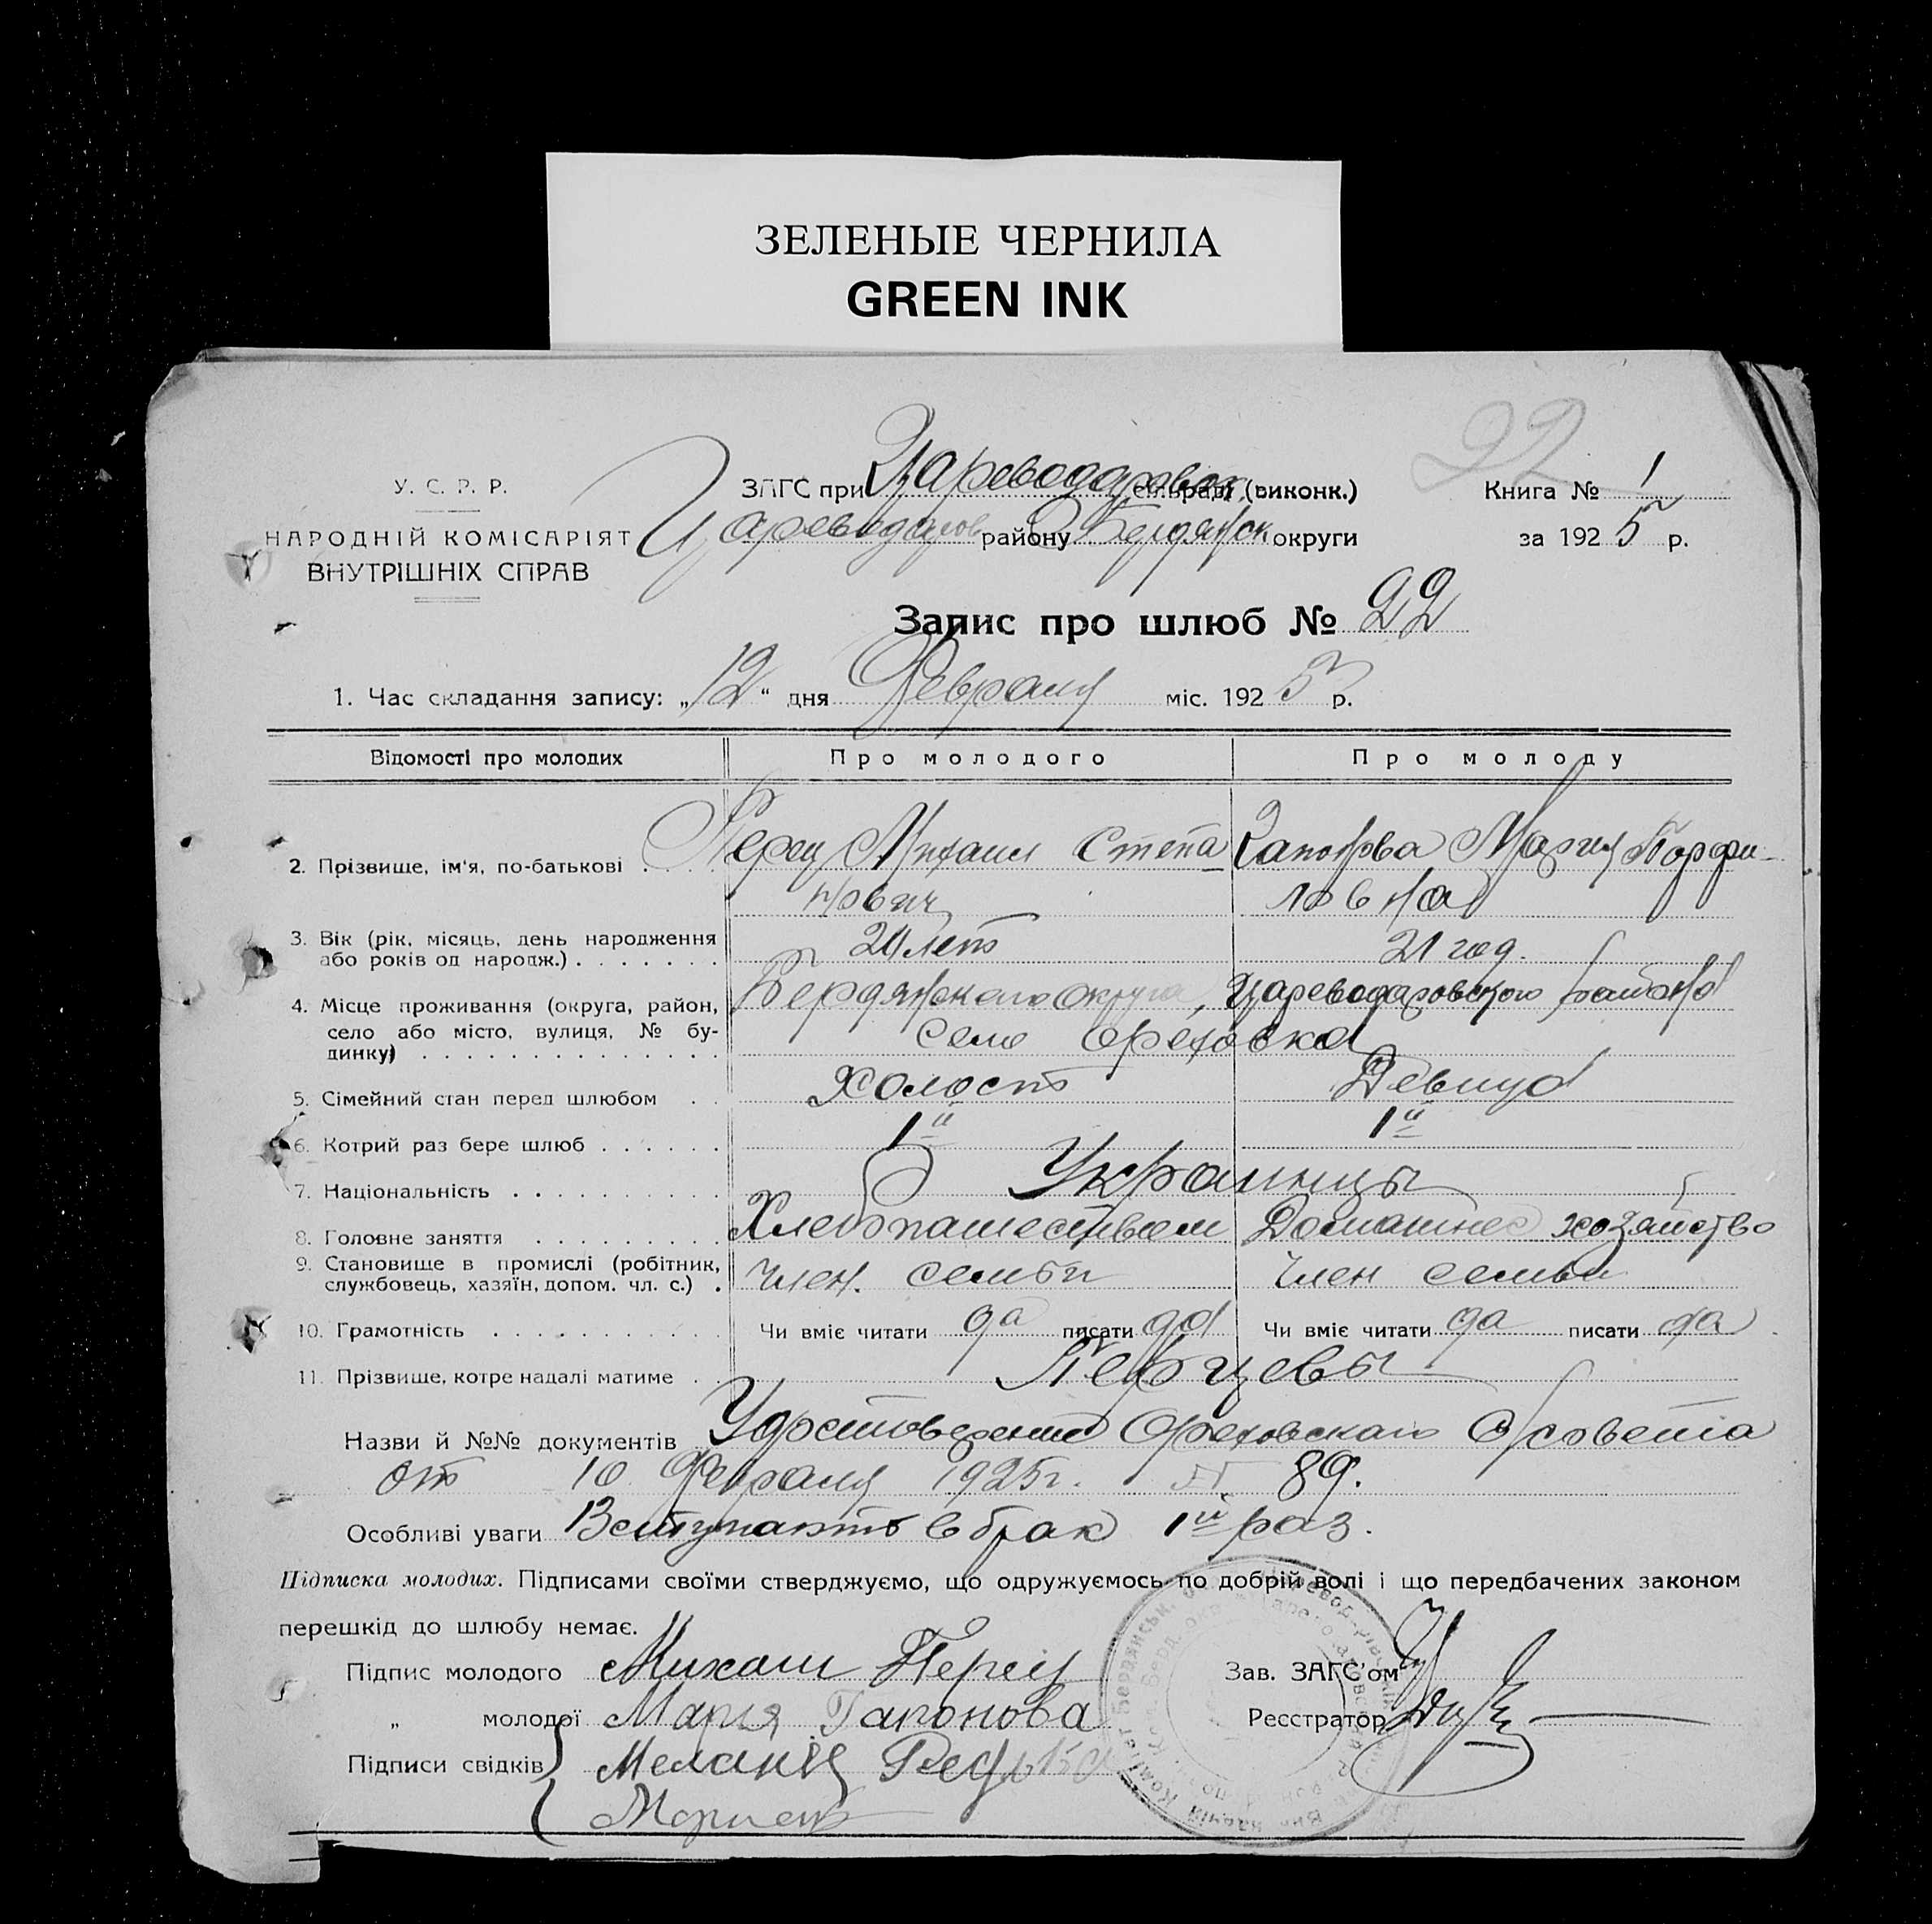 ЗЕЛЕНЫЕ ЧЕРНИЛА
GREEN INK
22
У. С. Р. Р.
НАРОДНІЙ КОМІСАРІЯТ
ВНУТРІШНІХ СПРАВ
ЗАГС при Цареводаровск сільраді (виконк.)
Цареводаров району Бердянск округи
Книга № 1
за 1925 р.
Запис про шлюб № 22
1. Час складання запису: „12“ дня Февраля міс. 1925 р.
Відомості про молодих Про молодого Про молоду
2. Прізвище, ім'я, по-батькові . . . . Перец Михаил Степа Гапонова Мария Порфи-
нович
3. Вік (рік, місяць, день народження
або років од народж.) . . . . . . . 20 лет 21 год.
4. Місце проживання (округа, район,
село або місто, вулиця, № бу-
динку) . . . . . . . . . . . . . . Бердянского округа, Цареводаровского района
село Ореховка
5. Сімейний стан перед шлюбом . . Холост Девица
6. Котрий раз бере шлюб . . . . . . 1й 1й
7. Національність . . . . . . . . . . Украинцы
8. Головне заняття . . . . . . . . . Хлебопашеством Домашнее хозяйство
9. Становище в промислі (робітник,
службовець, хазяїн, допом. чл. с.) . Член. семьи Член семьи
10. Грамотність . . . . . . . . . . . Чи вміє читати да писати да Чи вміє читати да писати да
11. Прізвище, котре надалі матиме . . Перцевы
Назви й №№ документів Удостоверение Ореховского с/совета
от 10 Февраля 1925 г. 89.
Особливі уваги Вступают в брак 1й раз.
Підписка молодих. Підписами своїми стверджуємо, що одружуємось по добрій волі і що передбачених законом
перешкід до шлюбу немає.
Підпис молодого Михаил Перец
„ молодої Марія Гапонова
Підписи свідків Меланія Редько
Зав. ЗАГС'ом
Реєстратор